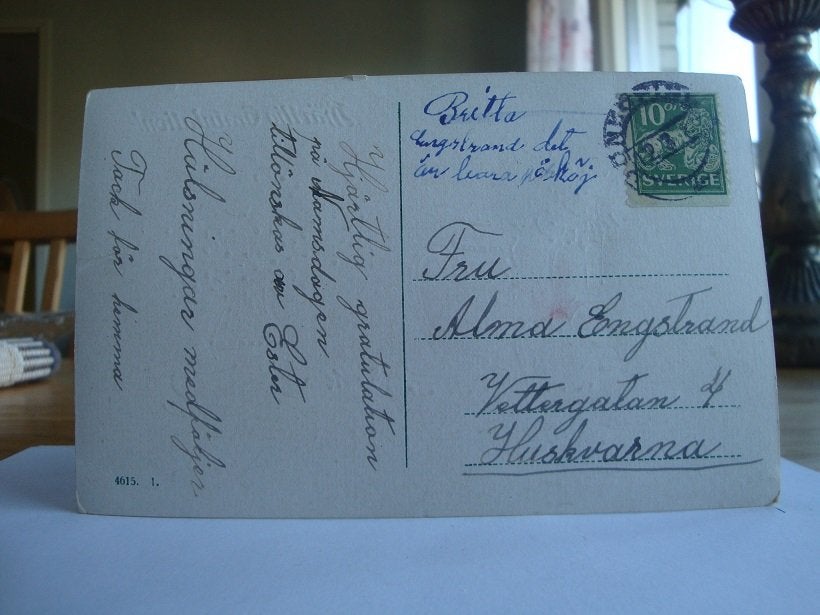 Hjärtlig gratulation
på Namsdagen
tillönskas av Ester
Hälsningar medföljer
Tack för himma
4615. 1.
Britta
Engstrand det
är bara på skoj
10 ÖRE
SVERIGE
Fru
Alma Engstrand
Vettergatan 4
Huskvarna